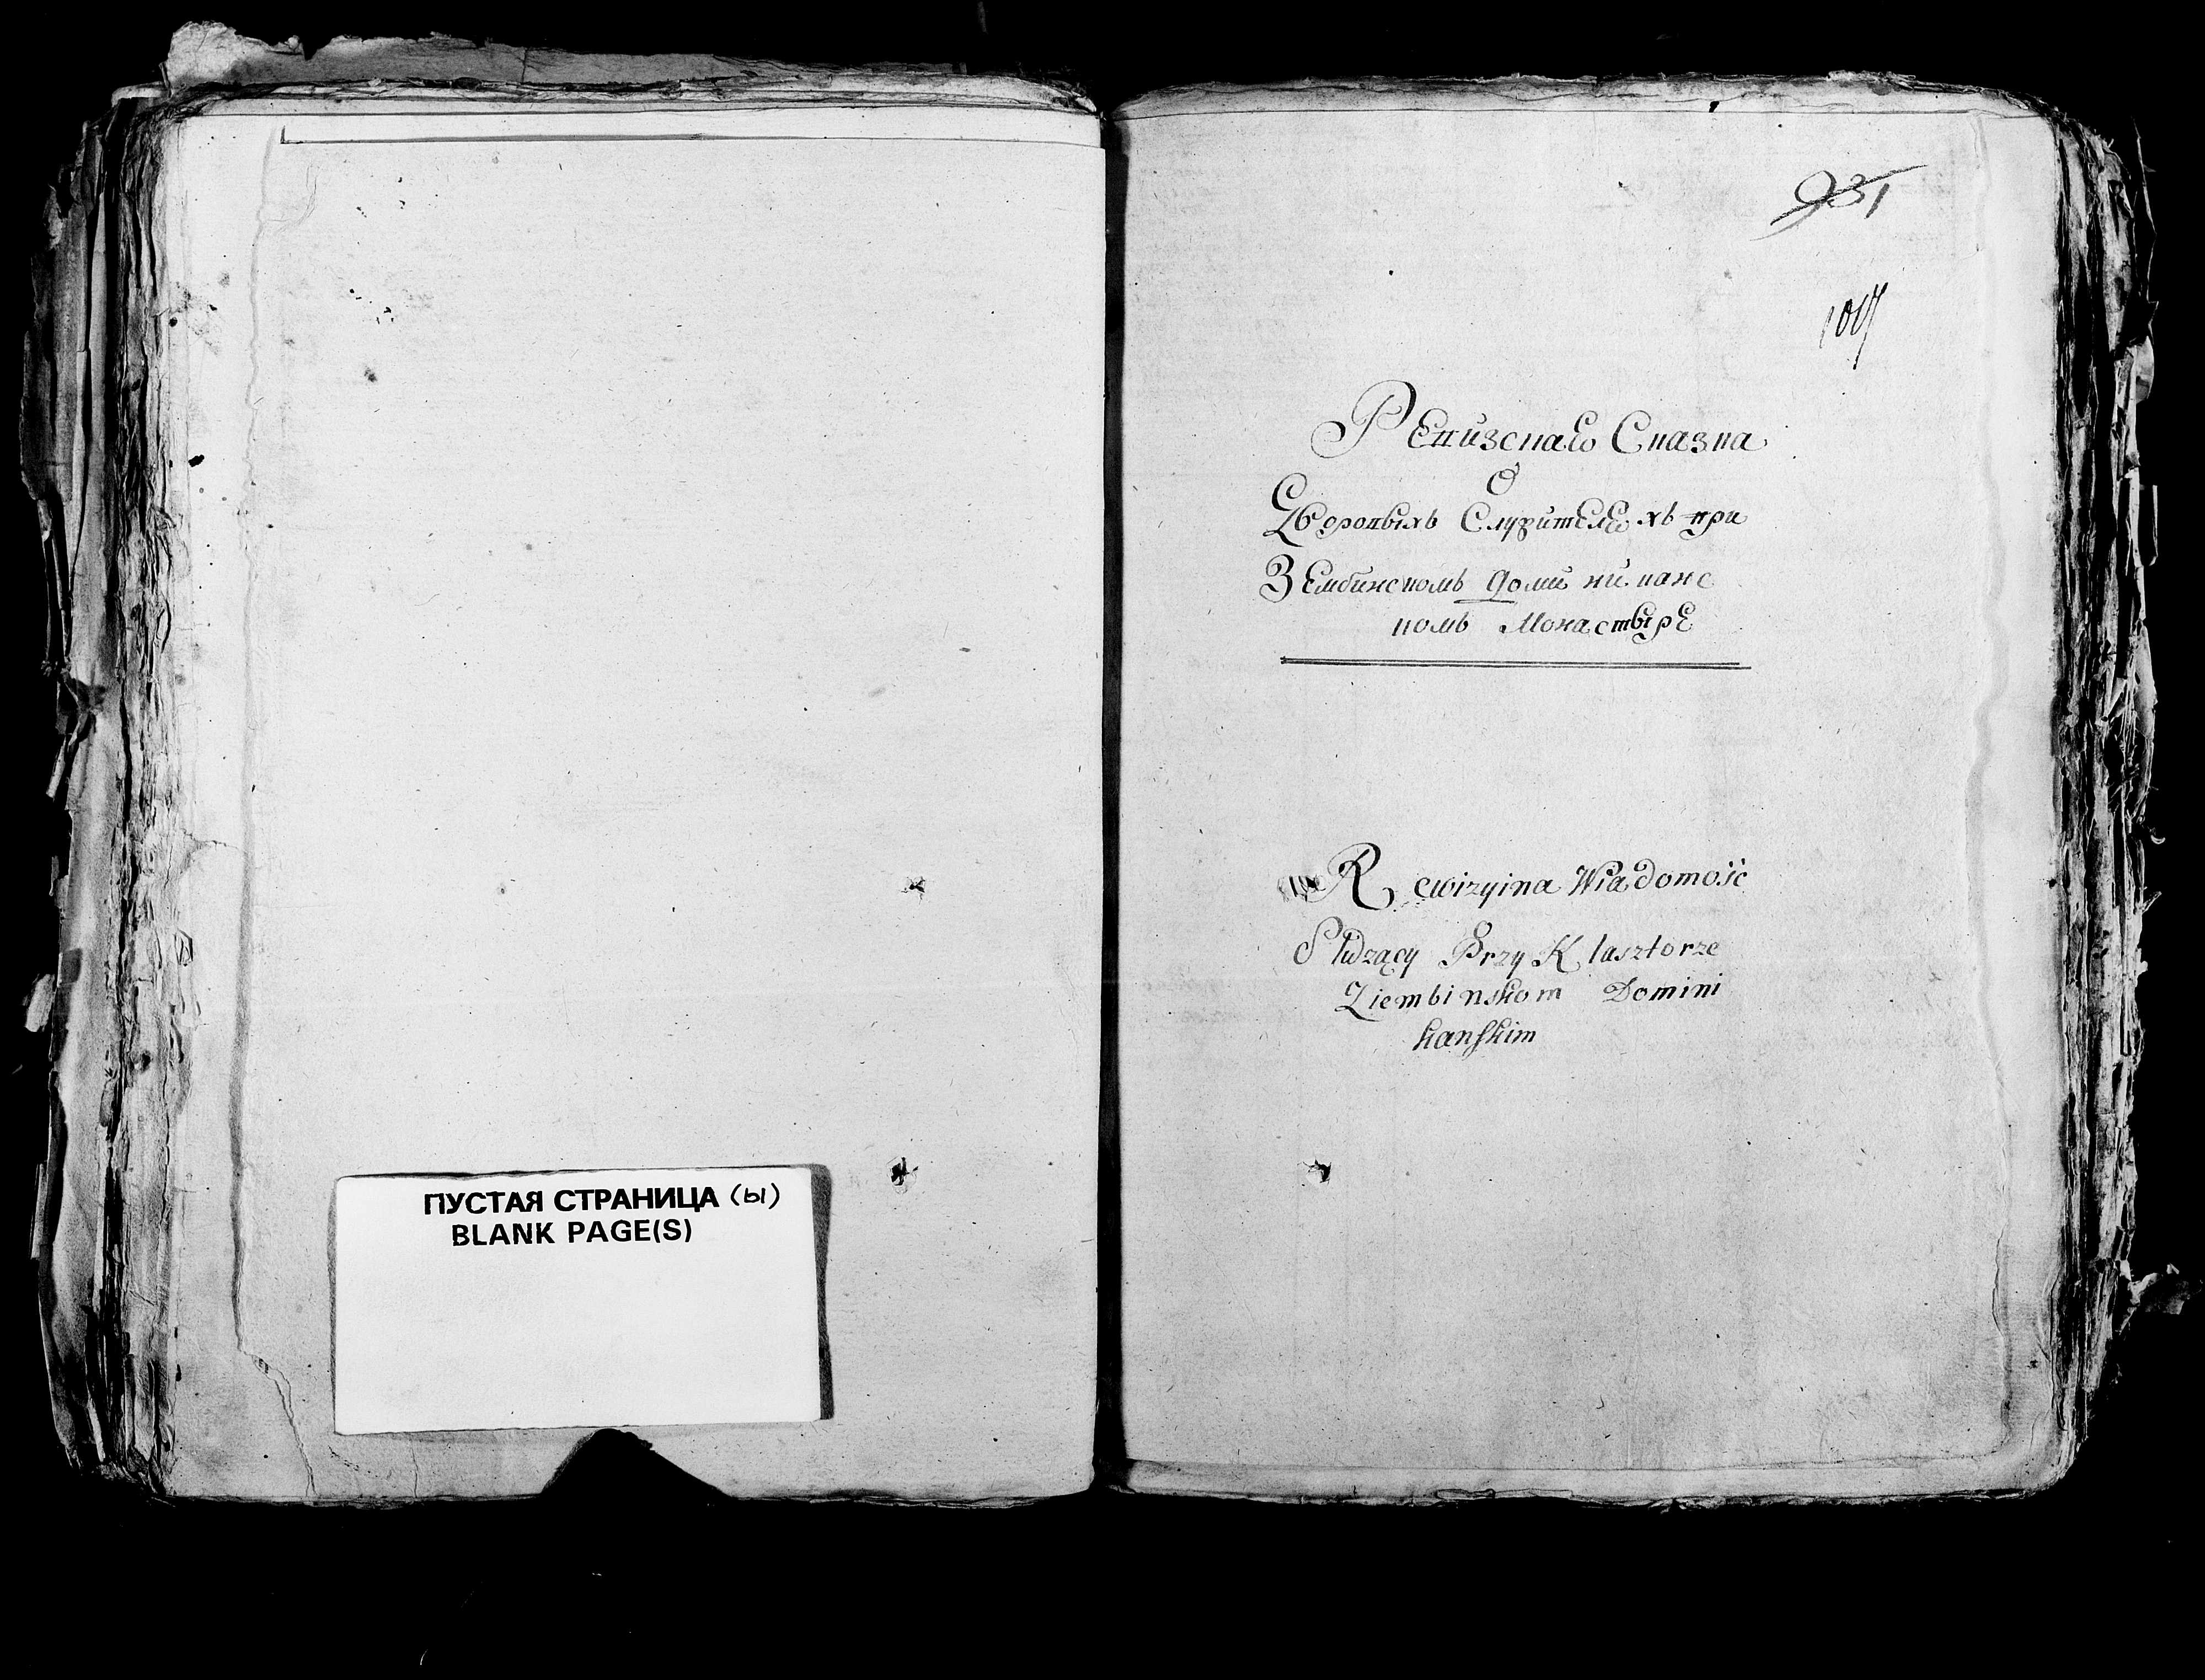 ПУСТАЯ СТРАНИЦА (Ы)
BLANK PAGE(S)
931
1007
Ревизская Сказка
О
Дворовыхъ Служителехъ при
Зембинскомъ Доминиканс
комъ Монастыре
Rewizyina Wiadomość
Służący Przy Klasztorze
Ziembinskom Domini
kanskim